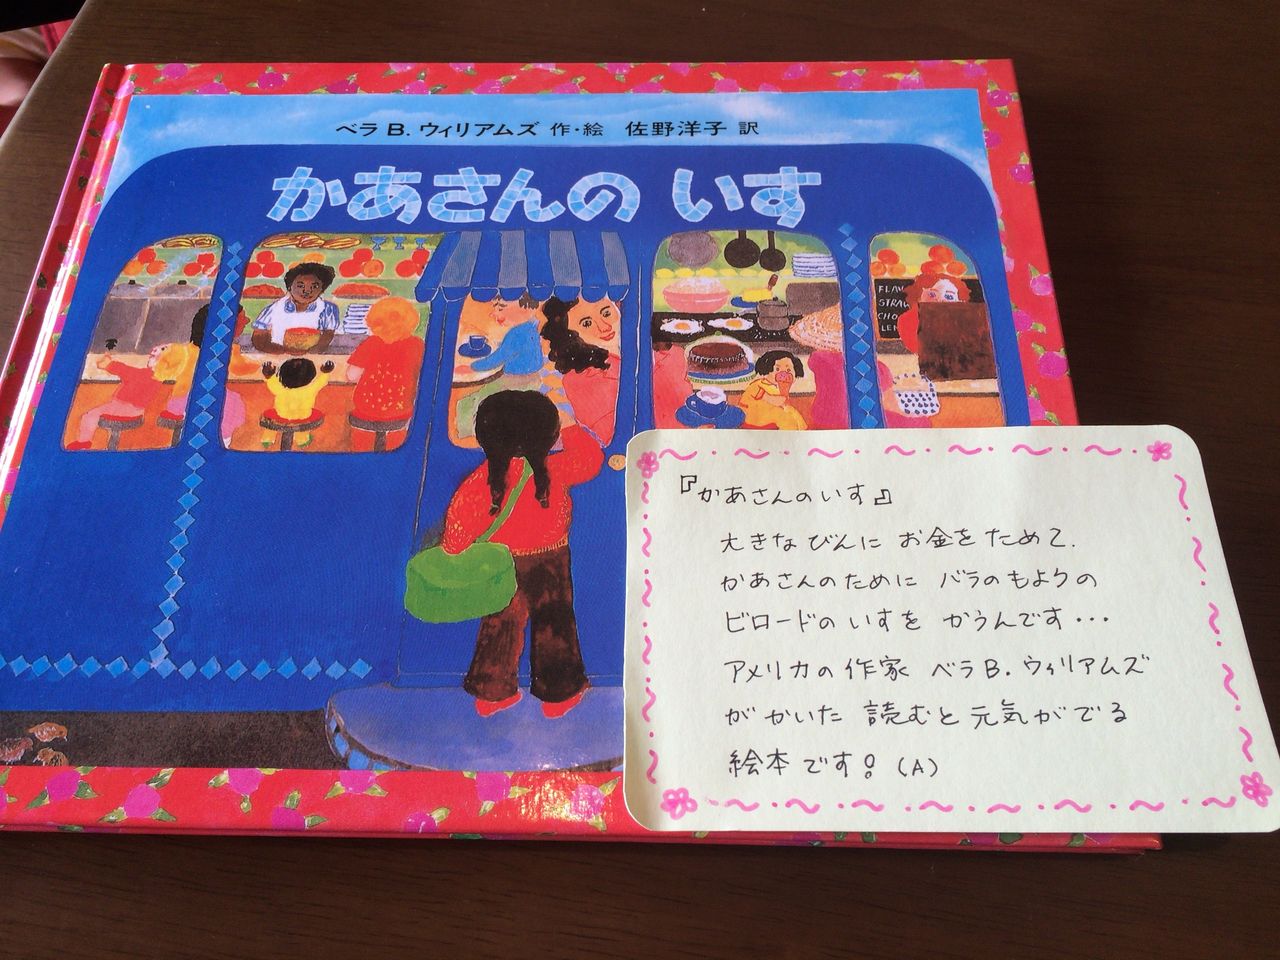 ベラ B. ウィリアムズ 作・絵 佐野洋子 訳
かあさんの いす
FLAV
STRAW
CHO
LEM
『かあさんのいす』
大きなびんに お金をためて、
かあさんのために バラのもようの
ビロードの いすを かうんです・・・
アメリカの作家 ベラB.ウィリアムズ
が かいた 読むと元気がでる
絵本です! (A)